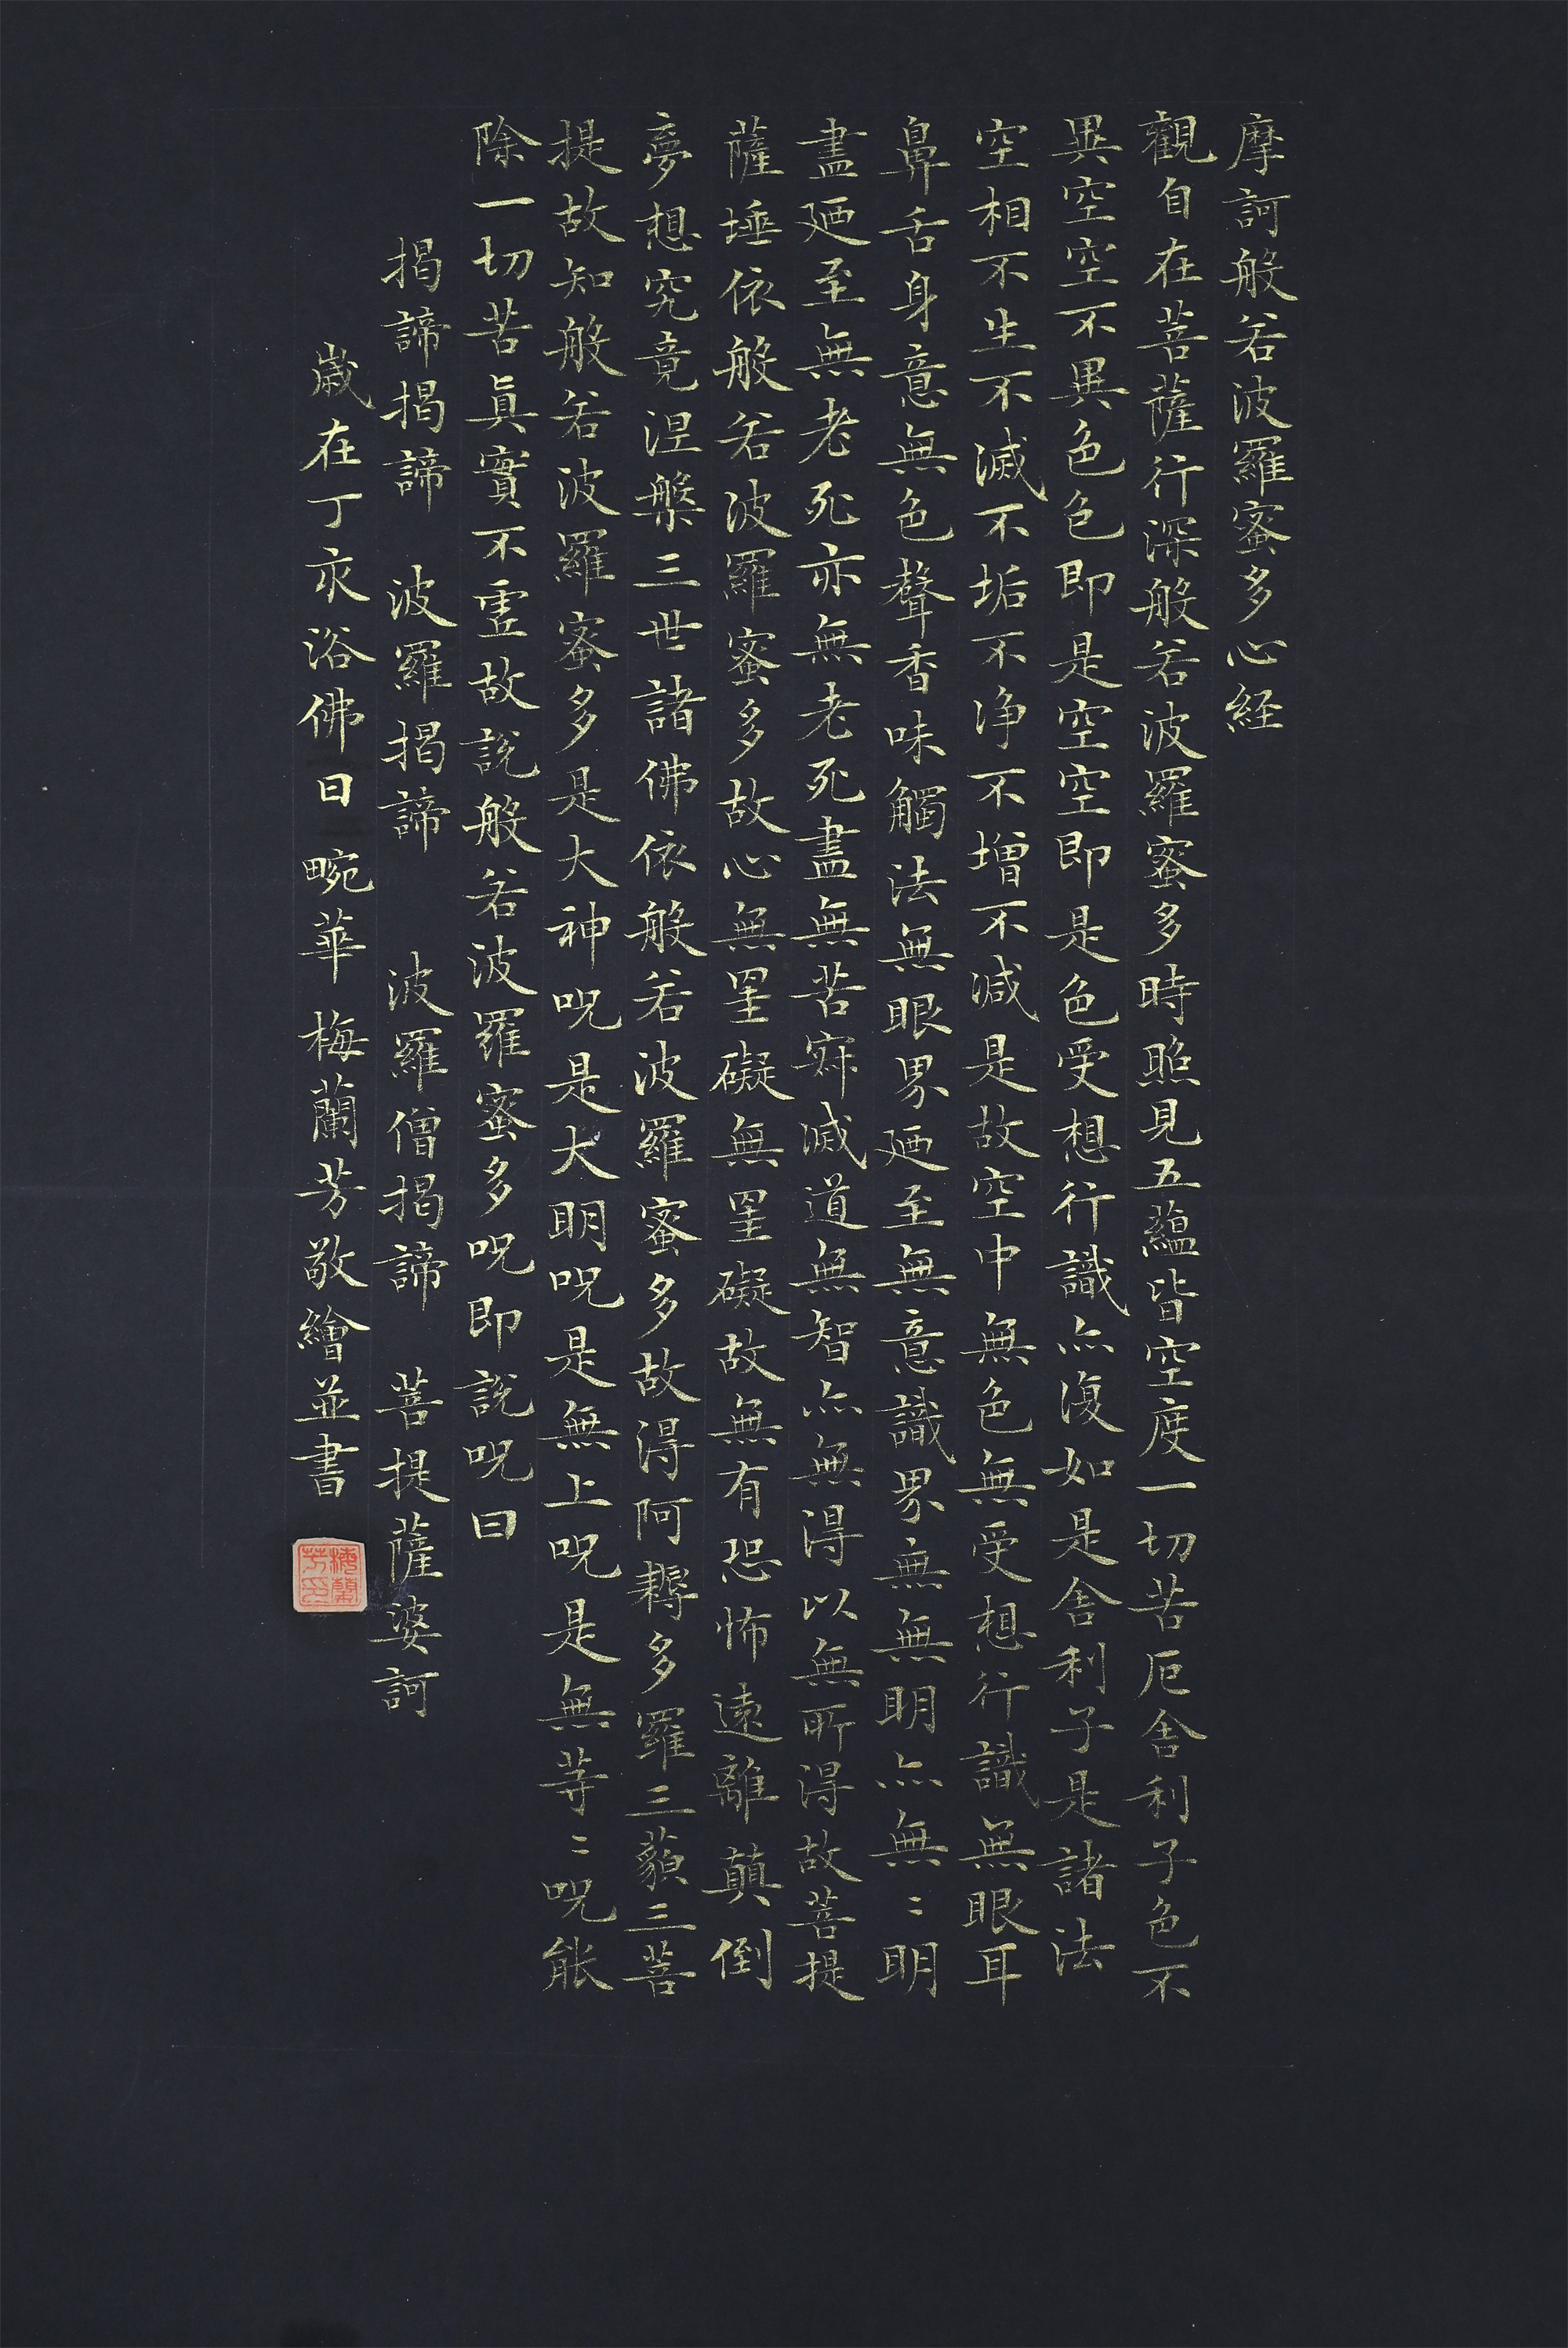 摩訶般若波羅蜜多心経
觀自在菩薩行深般若波羅蜜多時照見五蘊皆空度一切苦厄舍利子色不
異空空不異色色即是空空即是色受想行識亦復如是舍利子是諸法
空相不生不滅不垢不净不增不減是故空中無色無受想行識無眼耳
鼻舌身意無色聲香味觸法無眼界廼至無意識界無無明亦無〻明
盡廼至無老死亦無老死盡無苦寂滅道無智亦無得以無所得故菩提
薩埵依般若波羅蜜多故心無罣礙無罣礙故無有恐怖遠離顛倒
夢想究竟涅槃三世諸佛依般若波羅蜜多故得阿耨多羅三藐三菩
提故知般若波羅蜜多是大神呪是大明呪是無上呪是無等〻呪能
除一切苦真實不虛故說般若波羅蜜多呪即說呪曰
揭諦揭諦 波羅揭諦 波羅僧揭諦 菩提薩婆訶
歲在丁亥浴佛日畹華梅蘭芳敬繪並書
梅蘭芳印